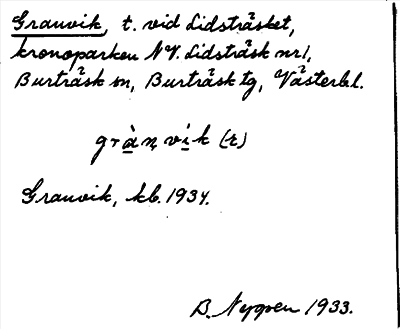 Granvik, t. vid Lidsträsket,
kronoparken NV. Lidsträsk nr 1,
Burträsk sn, Burträsk tg, Västerb.l.
grànvik (r)
Granvik, kb. 1934.
B. Nygren 1933.